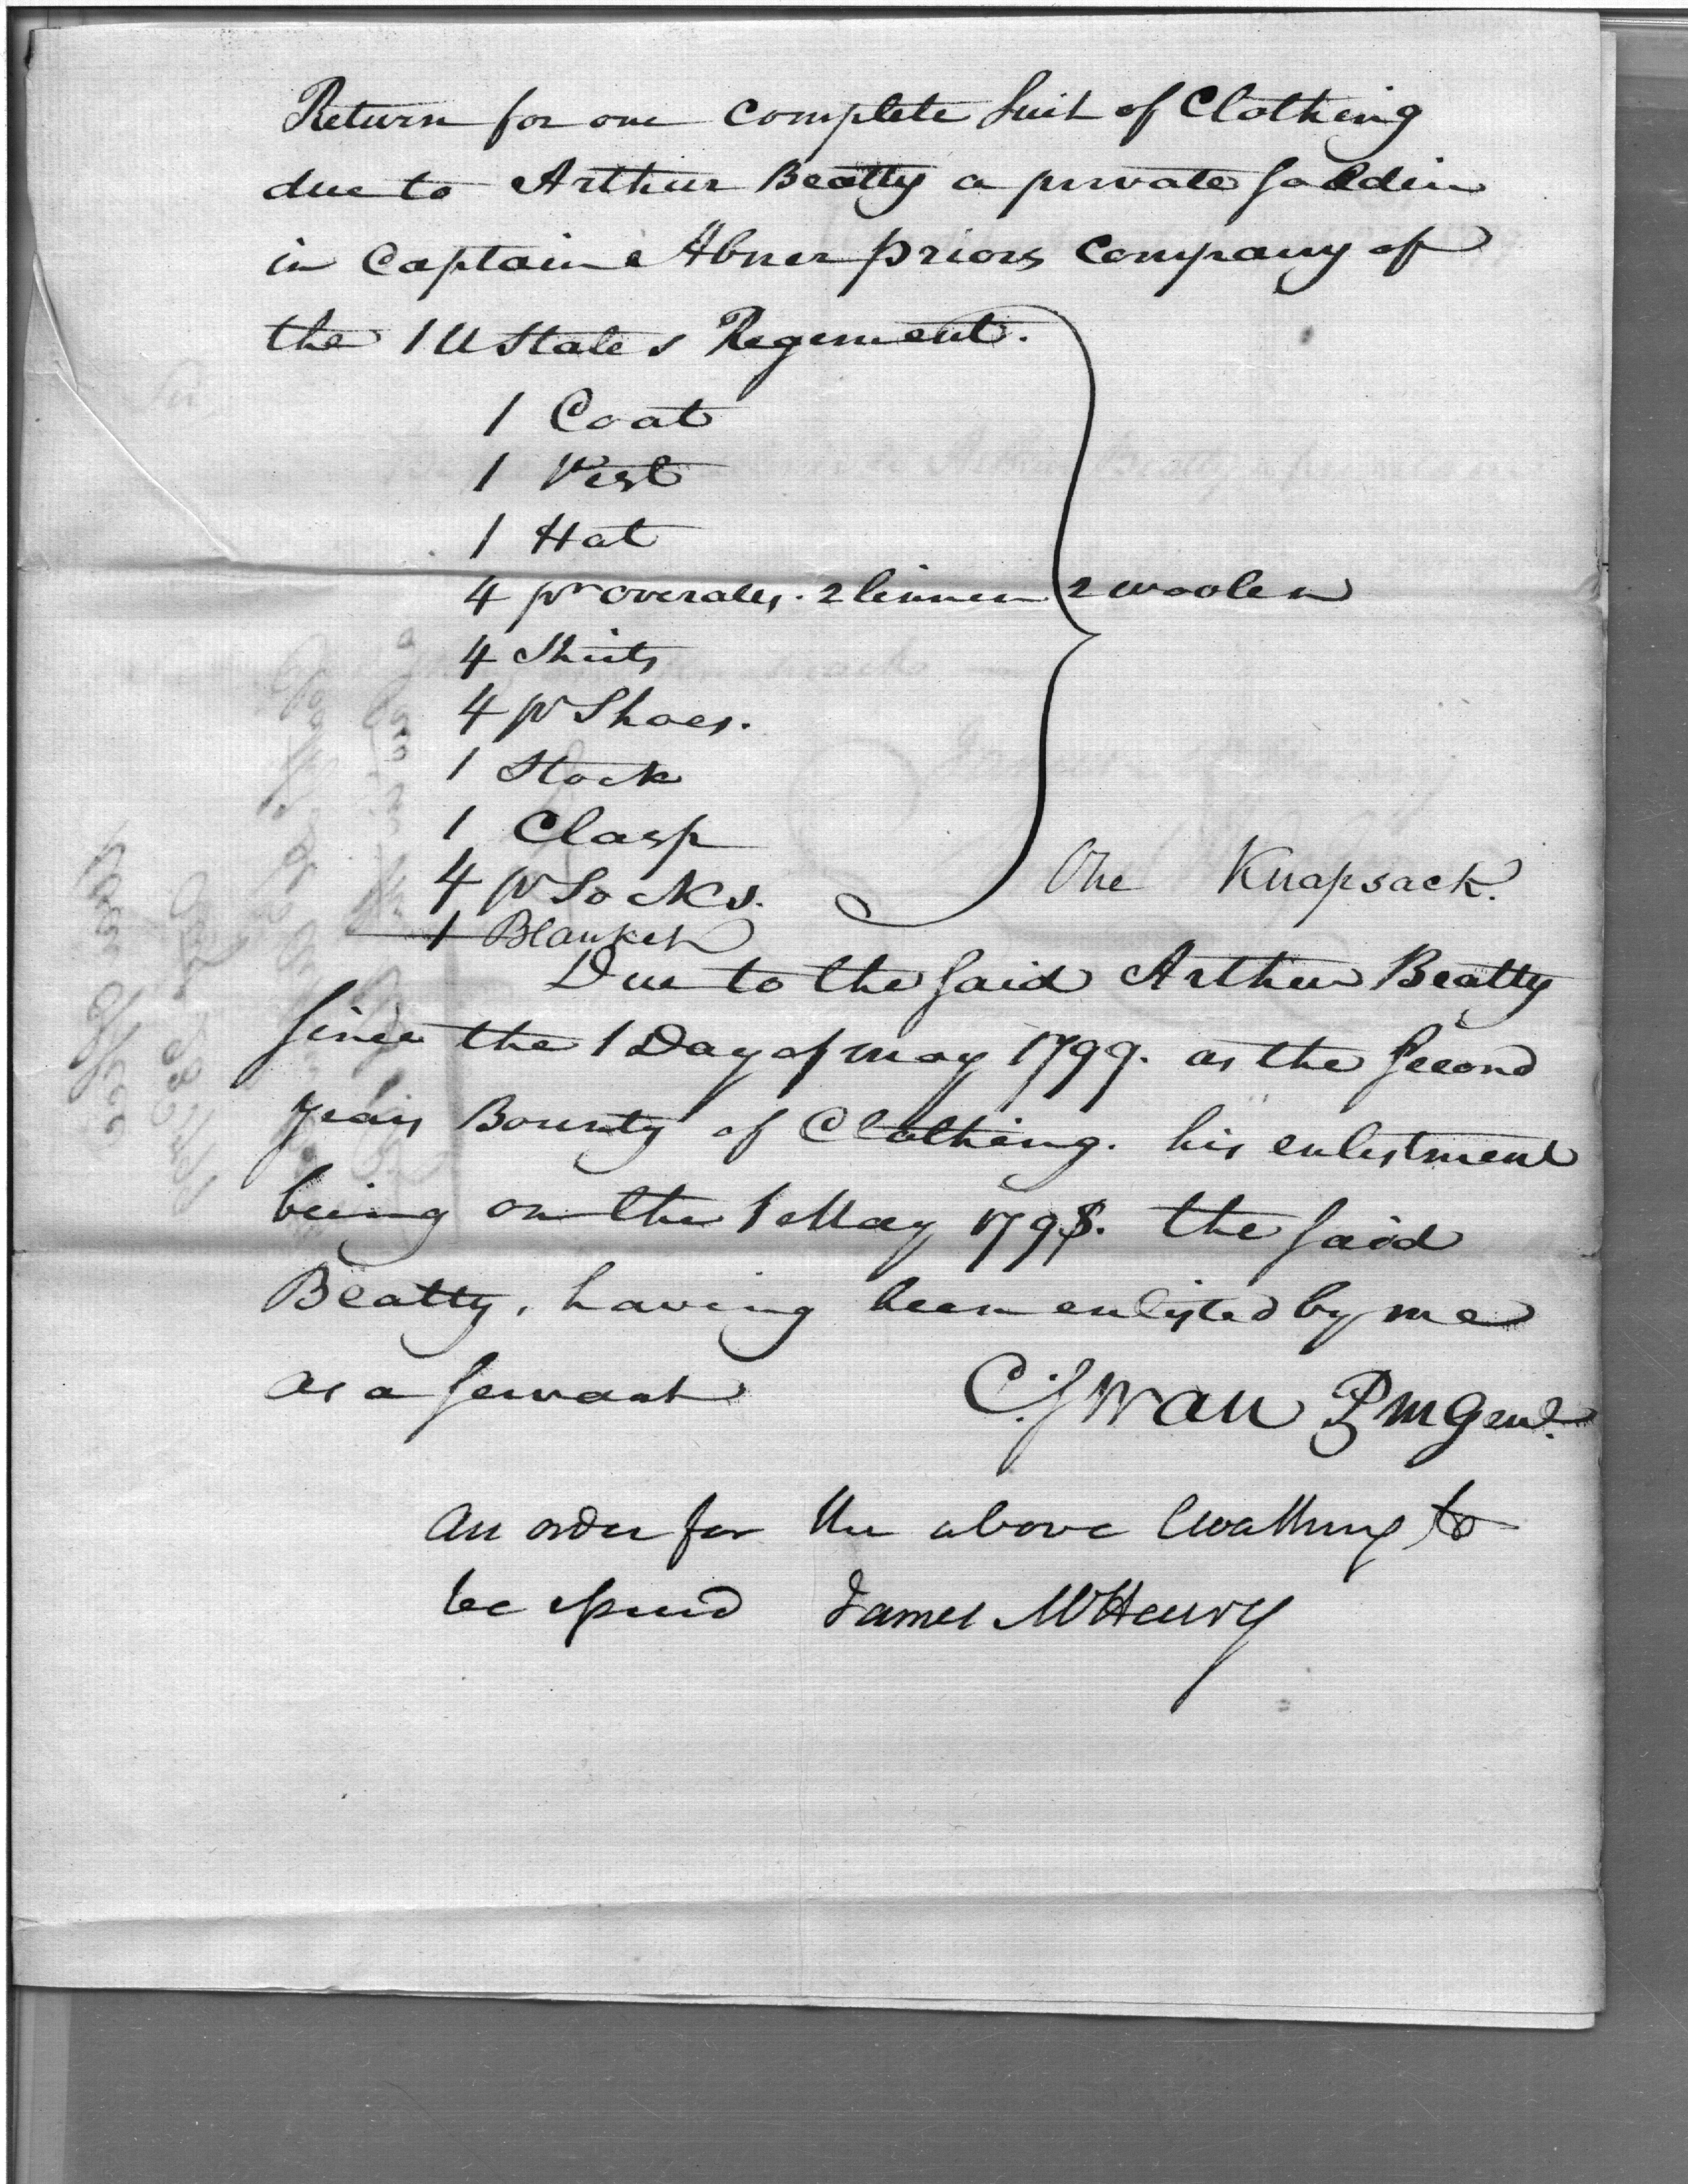 Return for one complete Suit of Clothing
due to Arthur Beatty a private Soldier
in Captain Abner Priors Company of
the 1 U States Regement.
1 Coat
1 Vest
1 Hat
4 pr overalls. 2 linnen 2 woolen
4 Shirts
4 pr Shoes.
1 Stock
1 Clasp
4 pr Socks.
One Knapsack.
1 Blanket
Due to the Said Arthur Beatty
Since the 1 Day of may 1799. as the Second
years Bounty of Clothing. his enlistment
being on the 1 May 1798. the Said
Beatty, having been enlisted by me
as a Servant
C. Swan P M Genl.
An order for the above cloathing to
be issued James McHenry